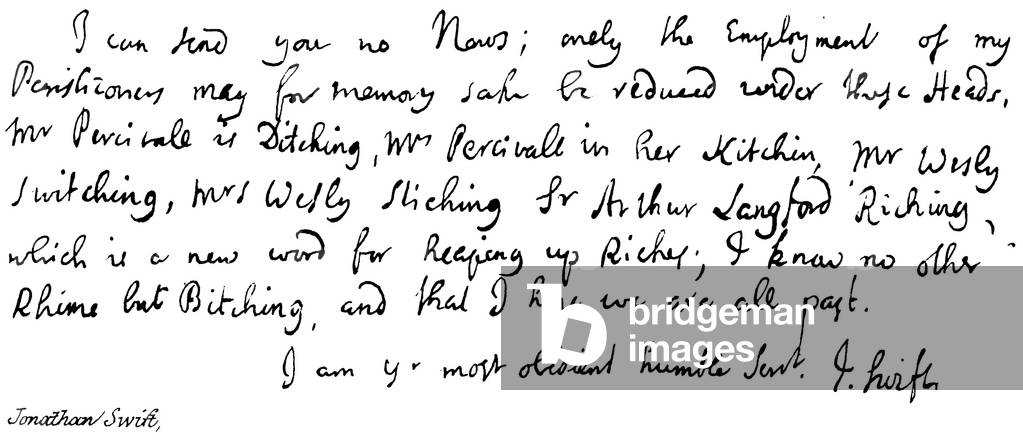 I can send you no News; onely the Employment of my
Parishioners may for memory sake be reduced under these Heads,
Mr Percivale is Ditching, Mrs Percivall in her Kitchin, Mr Wesly
Switching, Mrs Wesly Stiching Sr Arthur Langford Riching,
which is a new word for heaping up Riches; I know no other
Rhime but Bitching, and that I hope we are all past.
I am yr most obedient humble Servt. J. Swift
Jonathan Swift,
b bridgeman
images